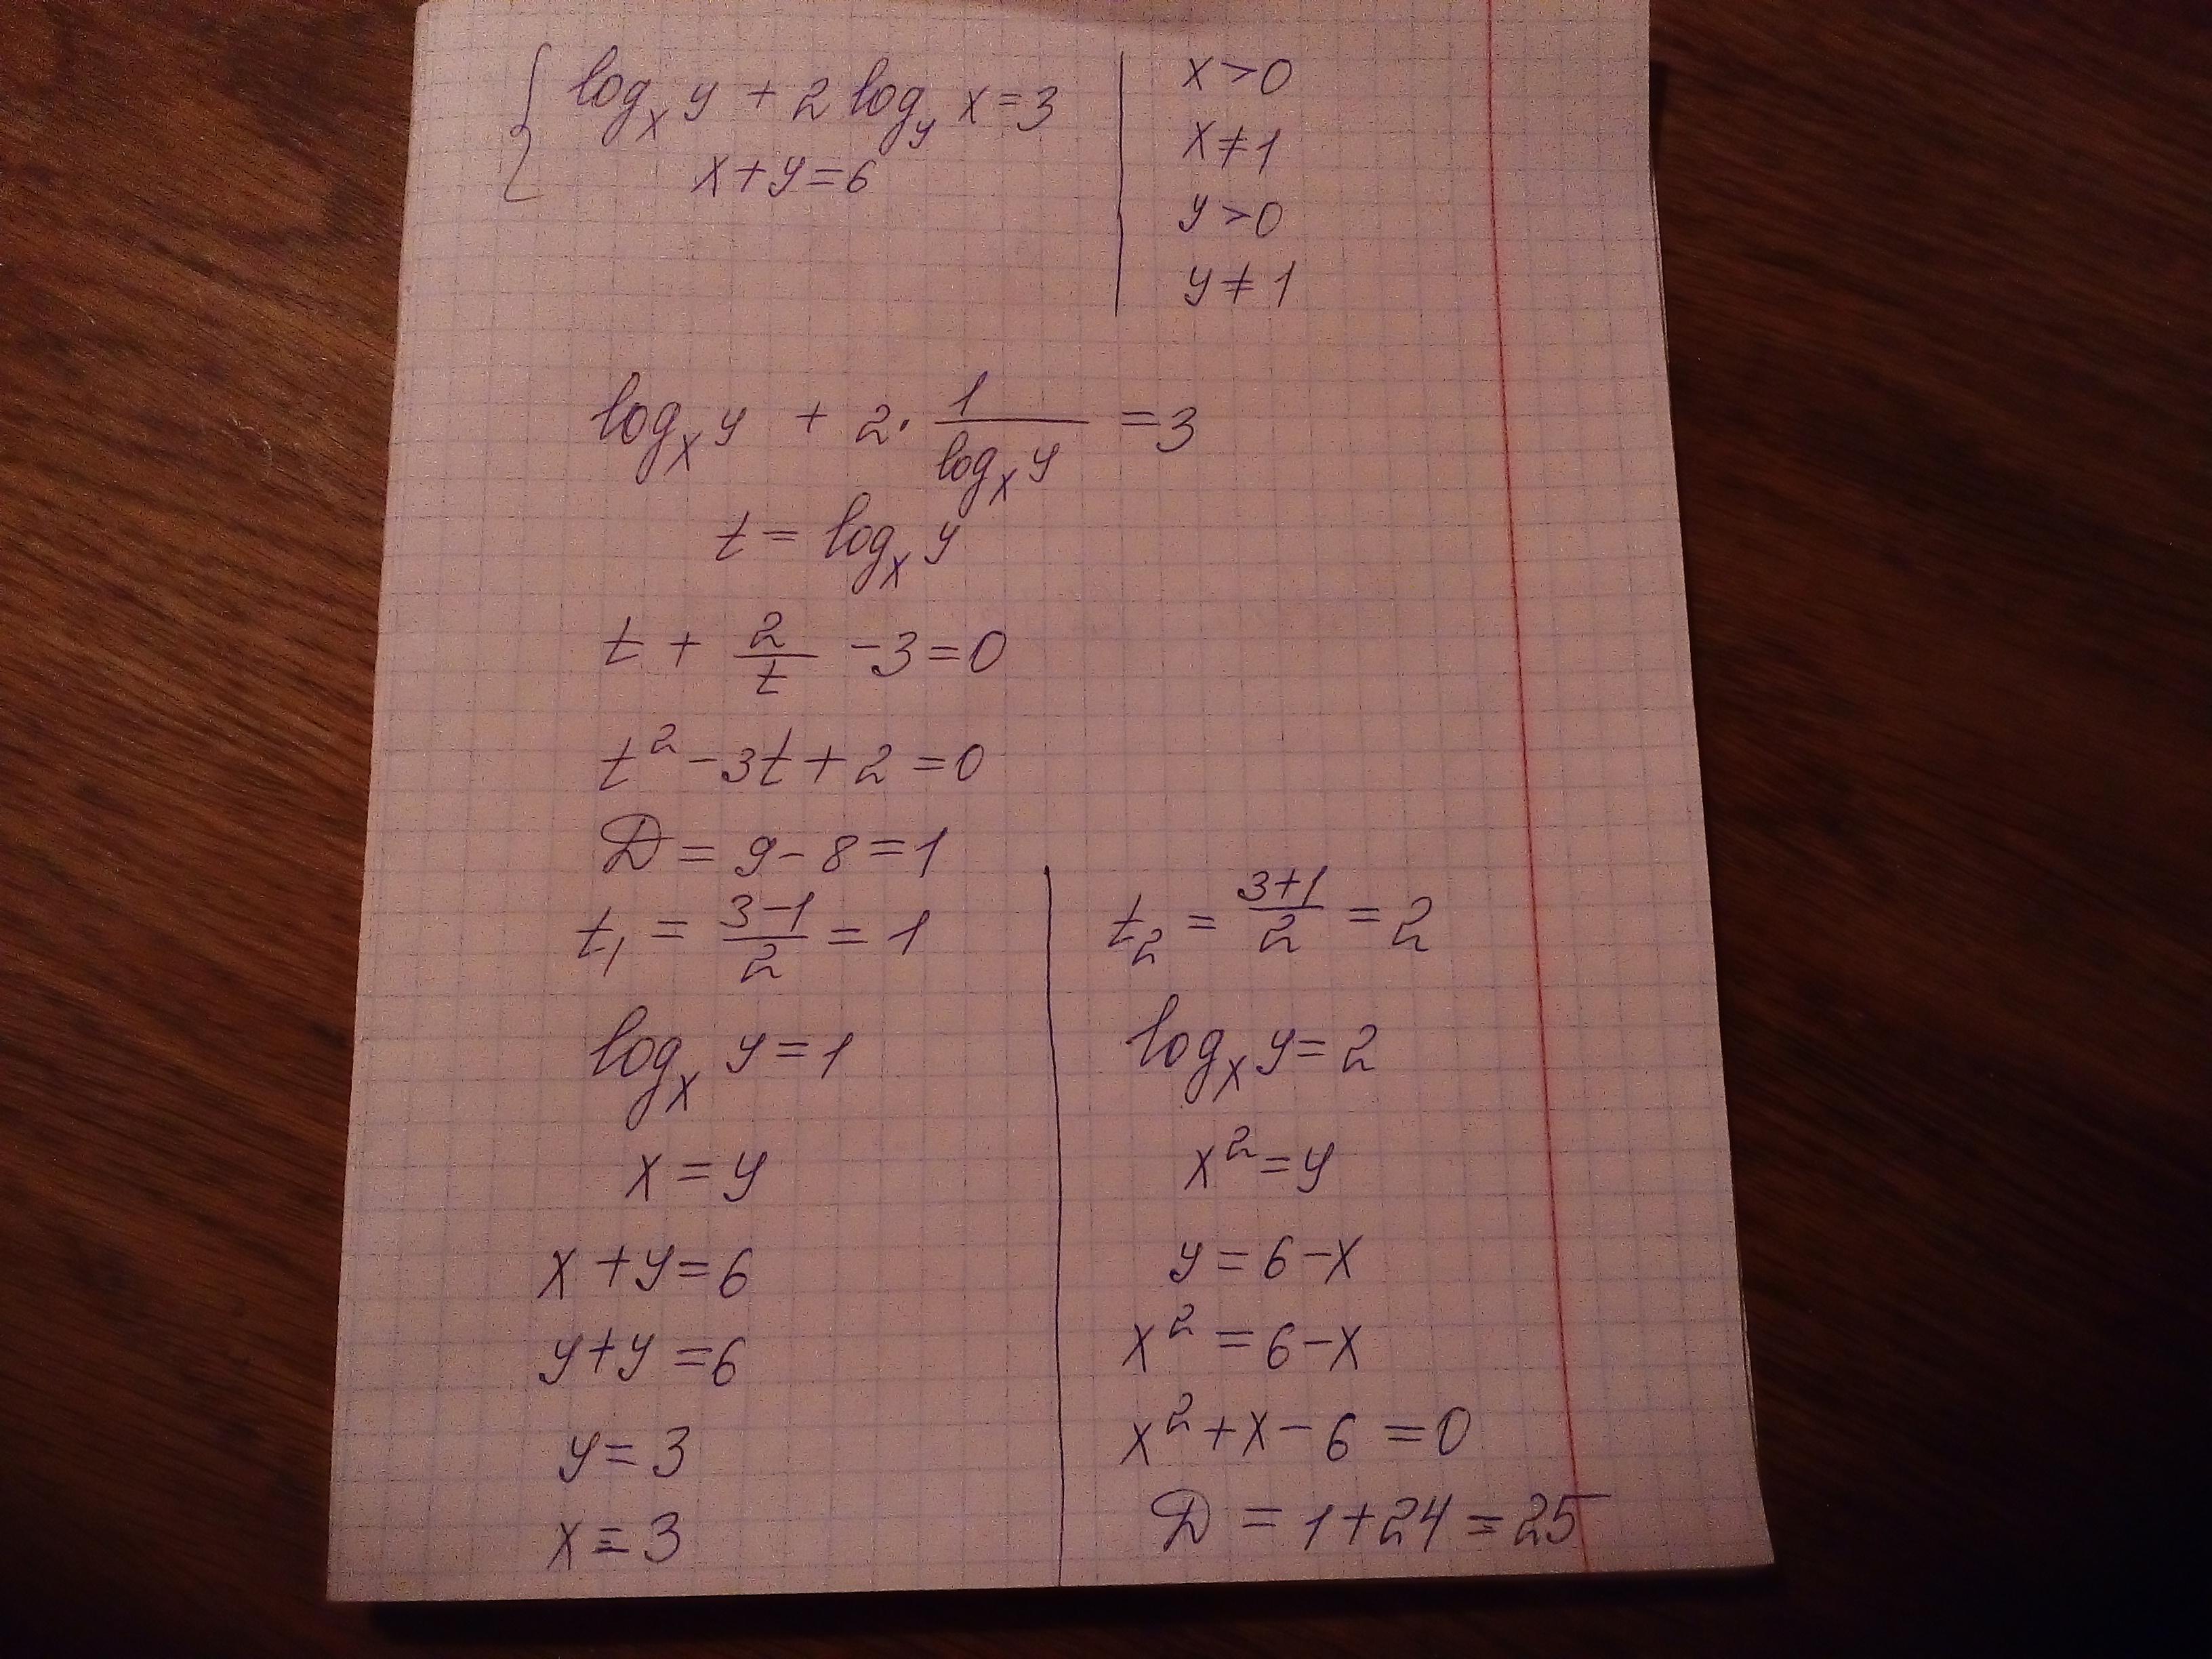 { log_x y + 2 log_y x = 3
x + y = 6
x > 0
x ≠ 1
y > 0
y ≠ 1
log_x y + 2 · 1/(log_x y) = 3
t = log_x y
t + 2/t - 3 = 0
t² - 3t + 2 = 0
D = 9 - 8 = 1
t₁ = (3-1)/2 = 1
log_x y = 1
x = y
x + y = 6
y + y = 6
y = 3
x = 3
t₂ = (3+1)/2 = 2
log_x y = 2
x² = y
y = 6 - x
x² = 6 - x
x² + x - 6 = 0
D = 1 + 24 = 25